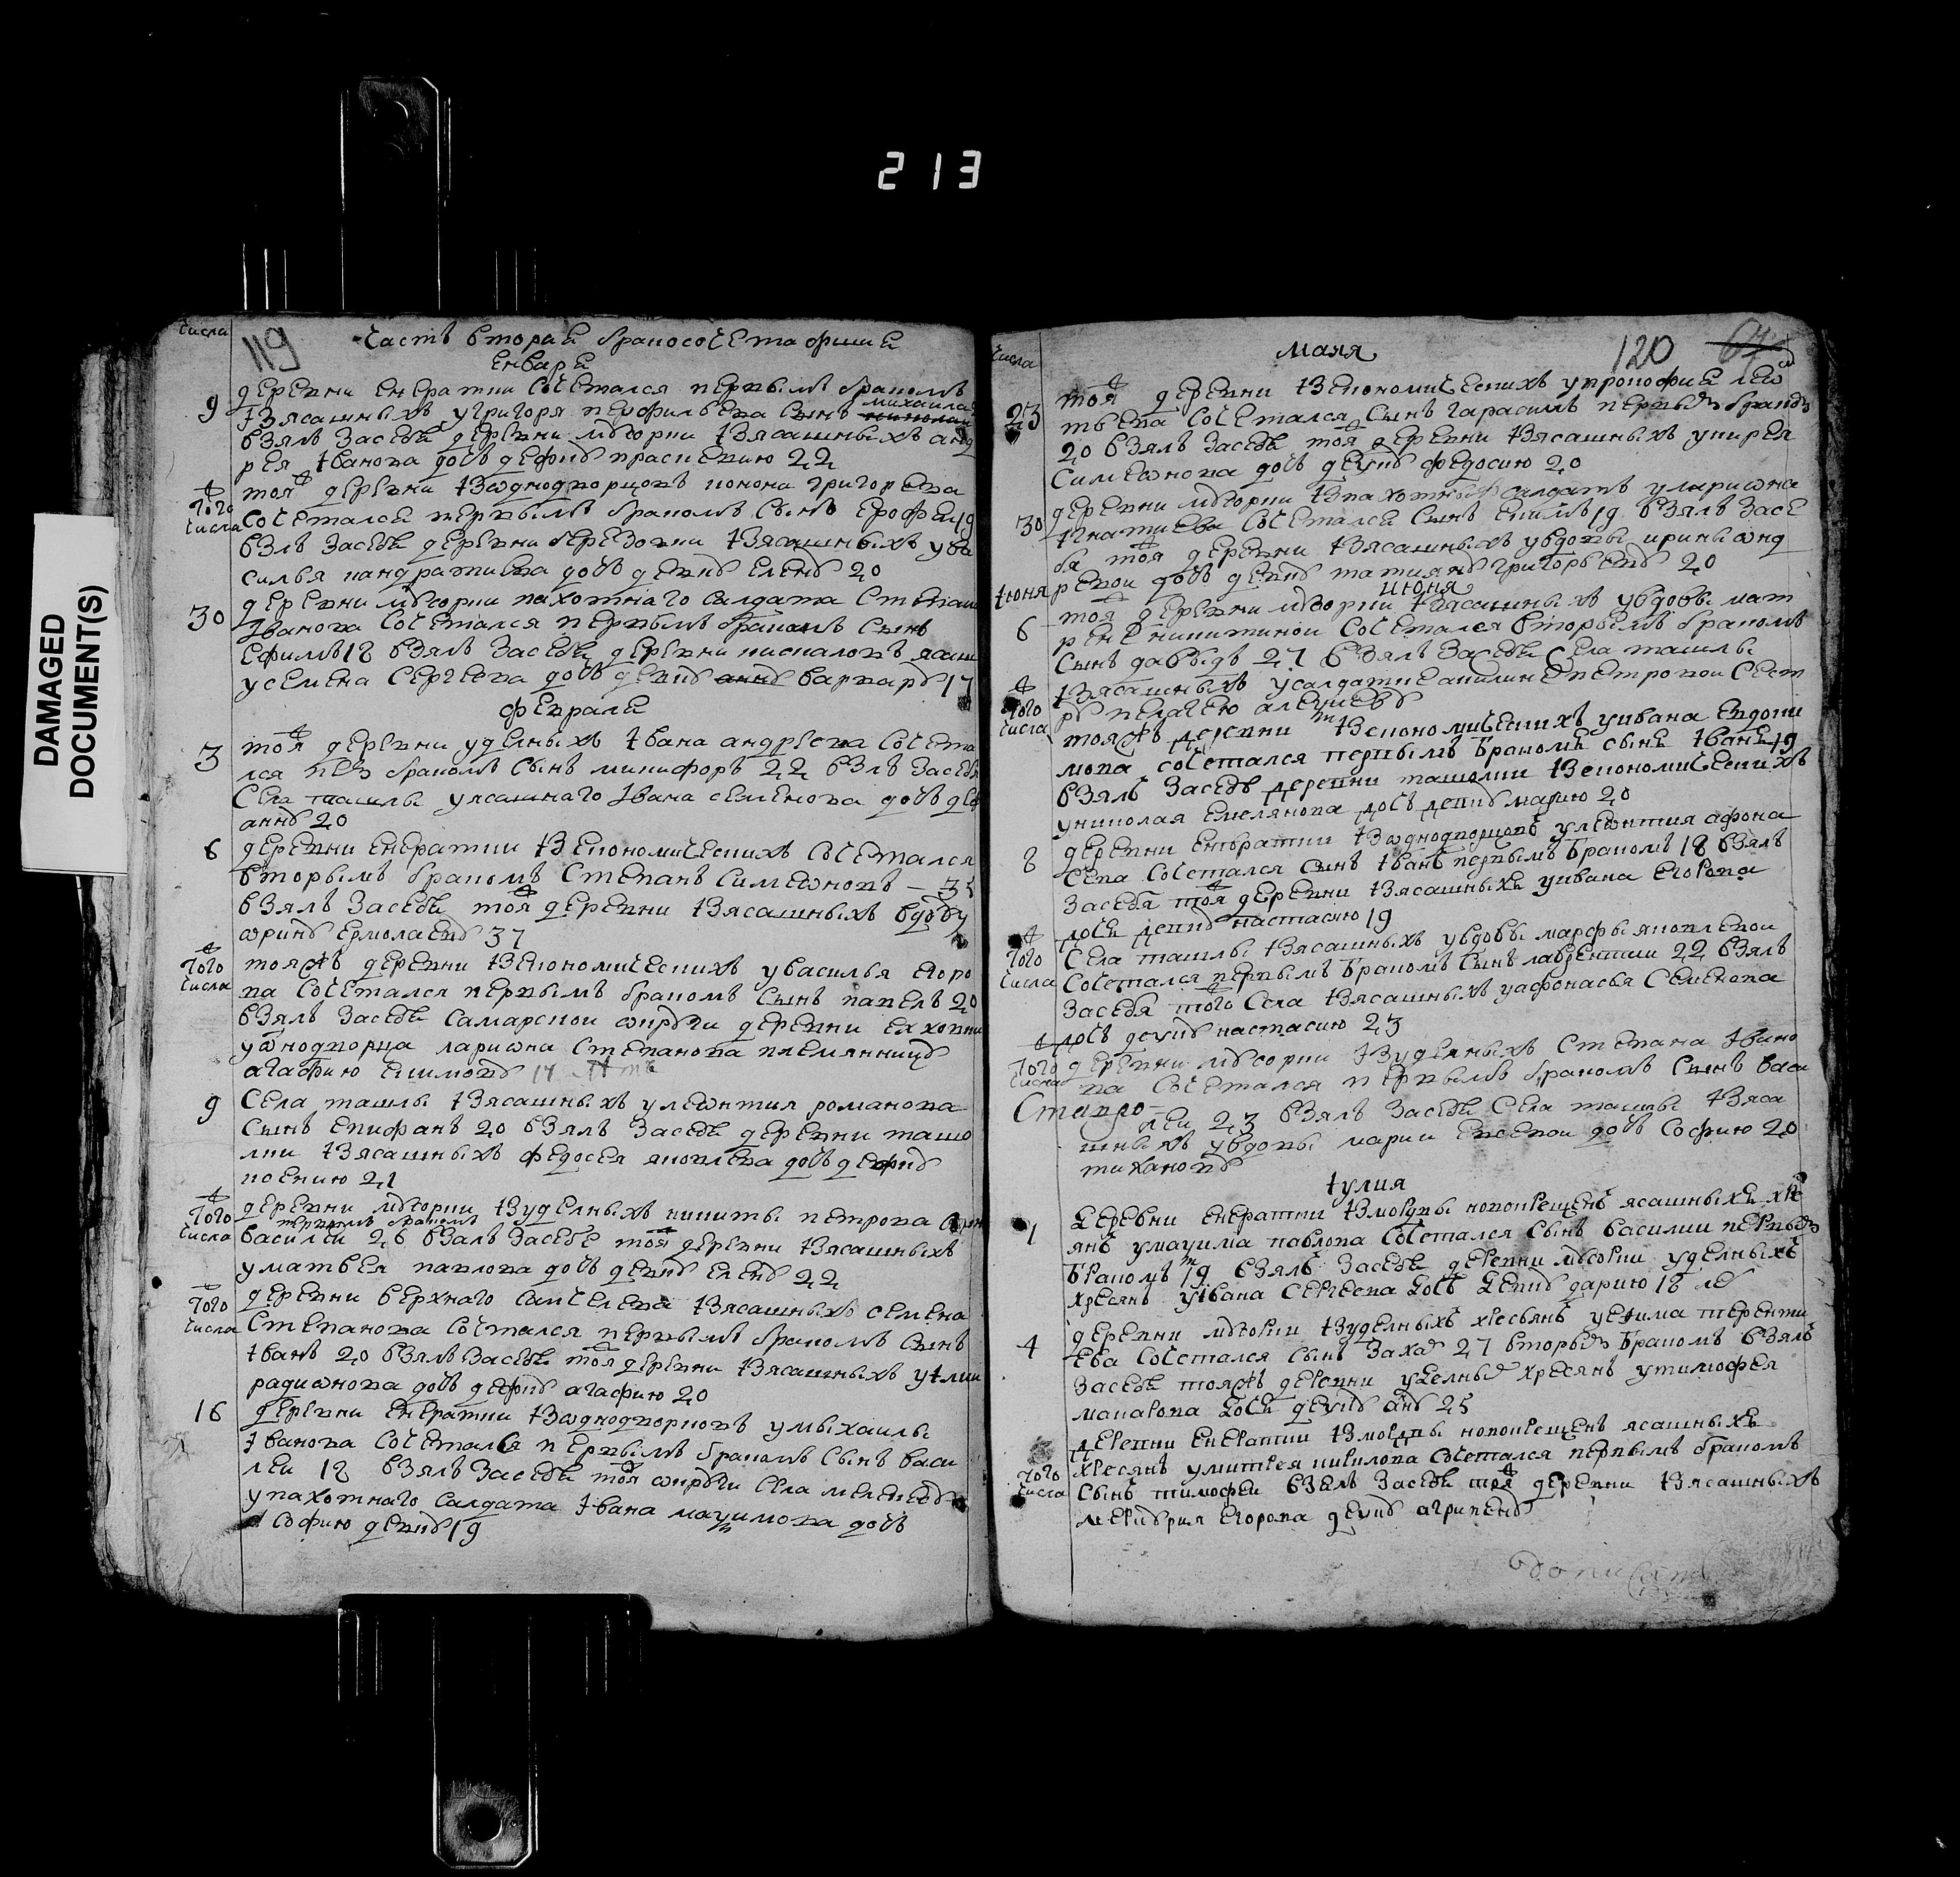 213
DAMAGED
DOCUMENT(S)
числа
119
Часть вторая бракосочетафшии
енваря
9
деревни енératки сочетался первымъ бракомъ
ізясашныхъ у григоря перфильева сынъ михаила
взялъ засебя деревни мысорки ізясашныхъ анд
рея іванова дочь дефку праскевию 22
того числа
тояж деревни ізоднодворцовъ конона григорева
сочетался первымъ бракомъ сынъ ерофеи 19
взлъ засебя деревни березовки ізясашныхъ ува
силья кандратиева дочь девку елену 20
30
деревни мысорки пахотнаго салдата степана
іванова сочетался первымъ бракомъ сынъ
ефимъ 18 взялъ засебя деревни ясаш
усемена сергеева дочь девку варвару 17
февраля
3
тояж деревни уделныхъ івана андреева сочета
лся бракомъ сынъ никифоръ 22 взлъ засебя
села ташлы уясашнаго івана семенова дочь дев
анну 20
6
деревни ізекономическихъ сочетался
вторымъ бракомъ степанъ симеоновъ – 35
взялъ засебя тояж деревни ізясашныхъ вдову
орину ермолаеву 37
того числа
тояжъ деревни ізекономическихъ увасилья егоро
ва сочетался первымъ бракомъ сынъ павелъ 20
взялъ засебя самарской округи деревни елховки
уоднодворца лариона степанова племянницу
агафию екимову 17
9
села ташлы ізясашныхъ улеонтия романова
сынъ епифанъ 20 взялъ засебя деревни ташо
лки ізясашныхъ федосея яковлева дочь дефку
ксению 21
того числа
деревни мысорки ізуделныхъ никиты петрова сынъ
первымъ бракомъ
василеи 26 взялъ засебе тояж деревни ізясашныхъ
уматвея павлова дочь девку елену 22
того числа
деревни верхнаго санчелева ізясашныхъ семена
степанова сочтался первымъ бракомъ сынъ
іванъ 20 взялъ засебя тояж деревни ізясашныхъ уіли
радионова дочь дефку агафию 20
16
деревни ізоднодворцовъ умыхаилы
іванова сочетался первымъ бракомъ сынъ васи
леи 18 взялъ засебя тояж округи села
упахотнаго салдата івана максимова дочь
софию девку 19
числа
маия
120
23
тояж деревни ізекономическихъ упрокофия лео
тьева сочетался сынъ гарасимъ первымъ бракомъ
20 взялъ засебя тояж деревни ізясашныхъ укирея
симеонова дочь девку федосию 20
30
деревни мысорки ізпахотныхъ салдатъ улариона
ігнатиева сочетался сынъ екимъ 19 взялъ засе
бя тояж деревни ізясашныхъ увдовы ирины анд
реевои дочь девку татияну григорьеву 20
іюня
июня
6
тояж деревни мысорки ізясашныхъ увдовы мат
рены никитинои сочетался вторымъ бракомъ
сынъ давыдъ 27 взялъ засебя села ташлы
ізясашныхъ усалдатки акилины петровои сест
ру пелагею алексееву
того числа
тояжъ деревни ізекономическихъ уивана евдоки
мова сочетался первымъ бракомъ сынъ іванъ 19
взялъ засебя деревни ташолки ізекономическихъ
униколая емелянова дочь девку марию 20
8
деревни ізоднодворцовъ улеонтия афона
сева сочетался сынъ іванъ первымъ бракомъ 18 взялъ
засебя тояж деревни ізясашныхъ уивана егорова
дочь девку настасию 19
того числа
села ташлы ізясашныхъ увдовы марфы яковлевои
сочетался первымъ бракомъ сынъ лаврентии 22 взялъ
засебя того села ізясашныхъ уафонасья семенова
дочь девку настасию 23
того числа
деревни мысорки ізуделныхъ степана івано
ва сочетался первымъ бракомъ сынъ васи
леи 23 взялъ засебя села ташлы ізяса
шныхъ увдовы марии дочь софию 20
тиханову
іулия
1
деревни ізмордвы новокрещенъ ясашныхъ хре
янъ умаксима павлова сочетался сынъ василии первымъ
бракомъ 19 взялъ засебя деревни мысорки уделныхъ
хресянъ уівана сергеева дочь девку дарию 18
4
деревни мысорки ізуделныхъ хресьянъ уефима теренти
ева сочетался сынъ захар 27 вторымъ бракомъ взялъ
засебя тояжъ деревни уделных хресянъ утимофея
макарова дочь девку анну 25
того числа
деревни ізмордвы новокрещенъ ясашныхъ
хресянъ сочетался первымъ бракомъ
сынъ тимофеи взялъ засебя тояж деревни ізясашныхъ
егорова девку агрипену